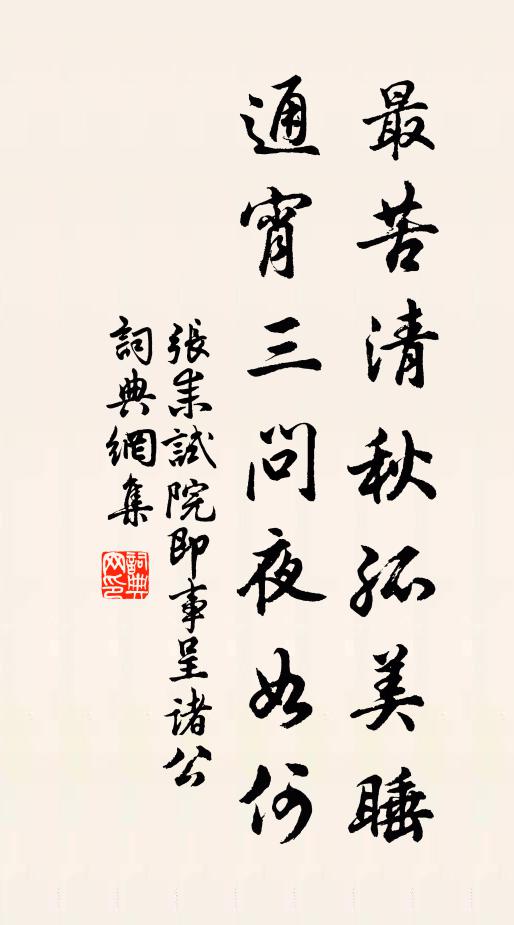 最苦清秋孤美睡
通宵三問夜如何
張耒試院即事呈諸公
詞典網集
詞典網印